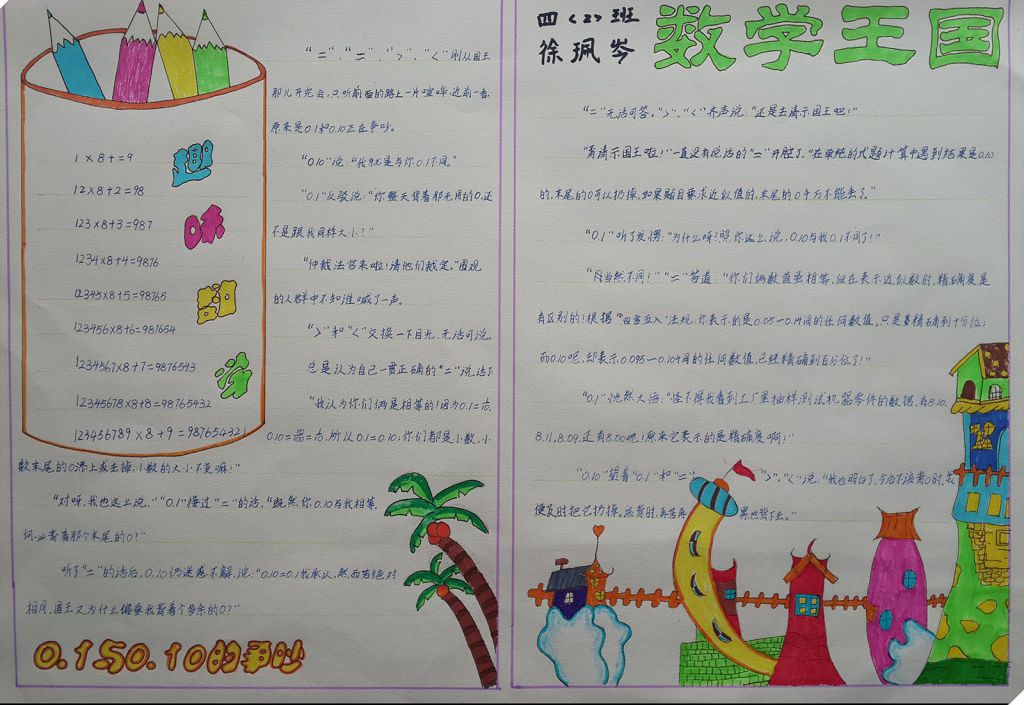 1×8+=9
12×8+2=98
123×8+3=987
1234×8+4=9876
12345×8+5=98765
123456×8+6=987654
1234567×8+7=9876543
12345678×8+8=98765432
123456789×8+9=987654321
趣
味
“=”、“=”、“>”、“<”刚从国王
那儿开完会,只听前面的路上一片喧哗,近前一看,
原来是0.1和0.10正在争吵。
“0.10”说:“我就是与你0.1不同。”
“0.1”反驳说:“你整天背着那无用的0,还
不是跟我同样大小!”
“仲裁法官来啦!请他们裁定。”围观
的人群中不知谁喊了一声。
“>”和“<”交换一下目光,无话可说。
总是认为自己一贯正确的“=”说话了
“我认为你们俩是相等的!因为0.1=
0.10= 所以0.1=0.10;你们都是小数,小
数末尾的0添上或去掉,小数的大小不变嘛!”
“对呀,我也这么说,”“0.1”接过“=”的话,“既然你0.10与我相等,
何必背着那个末尾的0?”
听了“=”的话后,0.10仍迷惑不解,说:“0.10=0.1我承认,然而若绝对
相同,国王又为什么偏要我背着个多余的0?”
0.1与0.10的争吵
四<2>班
徐珮岑
数学王国
“=”无话可答。“>”、“<”齐声说:“还是去请示国王吧!”
“甭请示国王啦!”一直没有说话的“=”开腔了,“在单纯的式题计算中遇到结果是0.10
的,末尾的0可以扔掉,如果题目要求近似值的,末尾的0千万不能丢了。”
“0.1”听了发愣:“为什么呀?照你这么说,0.10与我0.1不同了!”
“当然不同!”“=”答道:“你们俩数值虽相等,但在表示近似数时,精确度是
有区别的!根据“四舍五入”法规:你表示的是0.05—0.14间的任何数值,只是要精确到十分位;
而0.10呢,却表示0.095—0.104间的任何数值,已经精确到百分位了!”
“0.1”恍然大悟:“怪不得我看到工厂里抽样测试机器零件的数据,有8.10,
8.11,8.09,还有8.00呢!原来它表示的是精确度啊!”
“0.10”望着“0.1”和“=” “>”,“<”说:“我也明白了,今后不该背0时,我
便及时把它扔掉。该背时,再苦再累也背下去。”